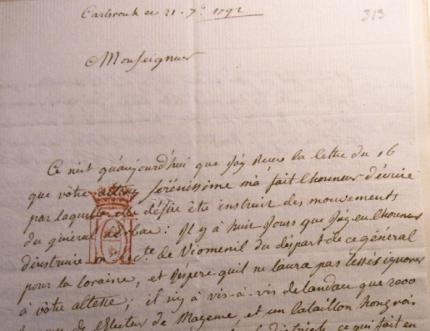 Carlsrouh ce 21. 7.e 1792
313
Monseigneur
Ce n'est qu'aujourd'hui que j'ay reçu la lettre du 16
que vôtre altesse sérénissime m'a fait l'honneur d'écrire
par laquelle elle désire être instruit des mouvements
du général : Il y a huit jours que j'ay eu l'honneur
d'instruire de Viomenil du départ de ce général
pour la loraine, et j'espere qu'il ne laura pas laissés ignorer
à vôtre altesse ; il n'y a vis-à-vis de landau que 2000
de l'Electeur de Mayence et un bataillon hongrois
ce qui fait en